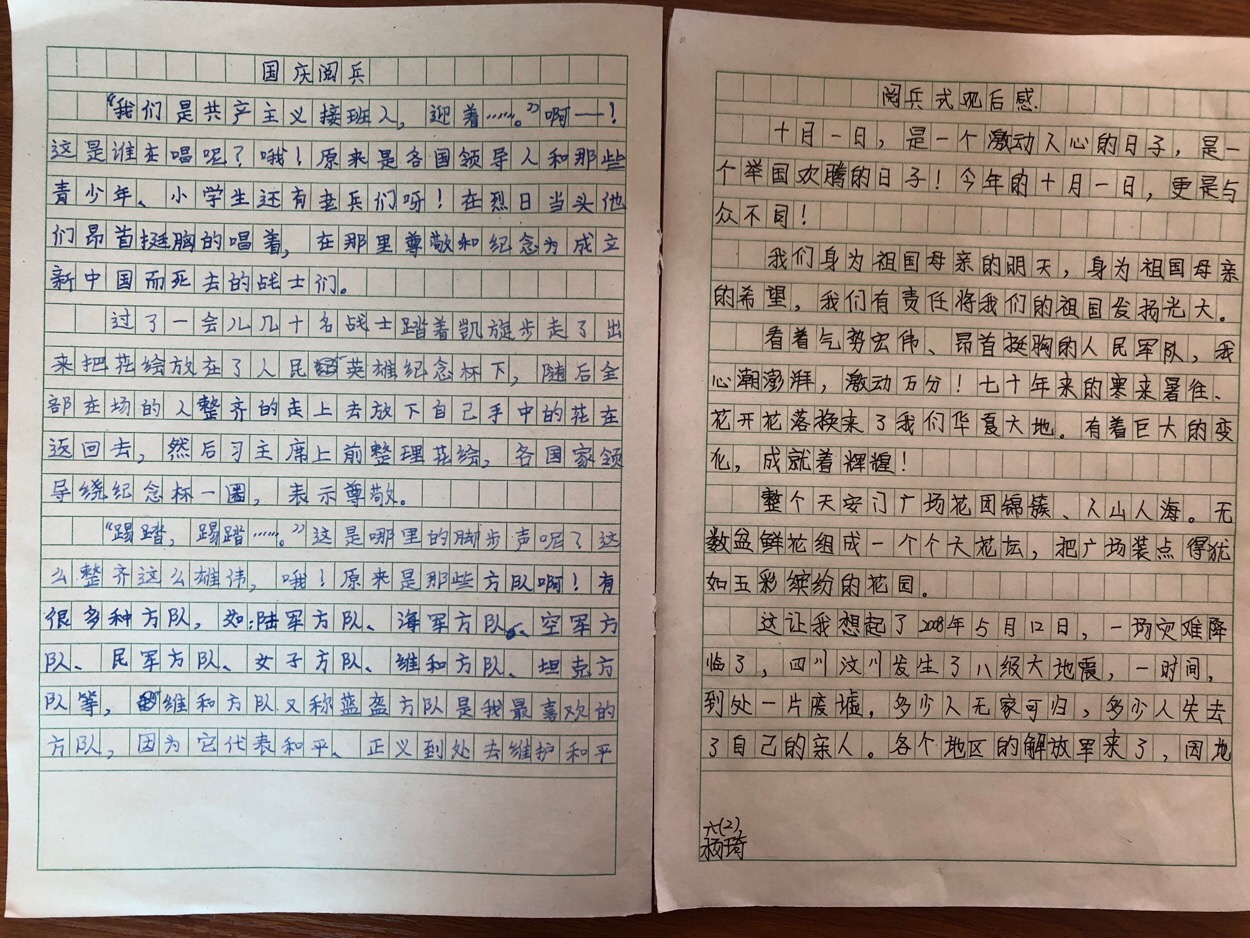 国庆阅兵
“我们是共产主义接班人,迎着……。”啊——!
这是谁在唱呢?哦!原来是各国领导人和那些
青少年、小学生还有老兵们呀!在烈日当头他
们昂首挺胸的唱着,在那里尊敬和纪念为成立
新中国而死去的战士们。
过了一会儿几十名战士踏着凯旋步走了出
来把花绘放在了人民英雄纪念杯下,随后全
部在场的人整齐的走上去放下自己手中的花在
返回去,然后习主席上前整理花绘,各国家领
导绕纪念杯一圈,表示尊敬。
“踢踏,踢踏……。”这是哪里的脚步声呢?这
么整齐这么雄伟,哦!原来是那些方队啊!有
很多种方队,如:陆军方队、海军方队、空军方
队、民军方队、女子方队、维和方队、坦克方
队等,维和方队又称蓝盔方队是我最喜欢的
方队,因为它代表和平、正义到处去维护和平
阅兵式观后感
十月一日,是一个激动人心的日子,是一
个举国欢腾的日子!今年的十月一日,更是与
众不同!
我们身为祖国母亲的明天,身为祖国母亲
的希望,我们有责任将我们的祖国发扬光大。
看着气势宏伟、昂首挺胸的人民军队,我
心潮澎湃,激动万分!七十年来的寒来暑往、
花开花落换来了我们华夏大地。有着巨大的变
化,成就着辉煌!
整个天安门广场花团锦簇、人山人海。无
数盆鲜花组成一个个大花坛,把广场装点得犹
如五彩缤纷的花园。
这让我想起了2008年5月12日,一场灾难降
临了,四川汶川发生了八级大地震,一时间,
到处一片废墟,多少人无家可归,多少人失去
了自己的亲人。各个地区的解放军来了,因地
六(2)
杨琦